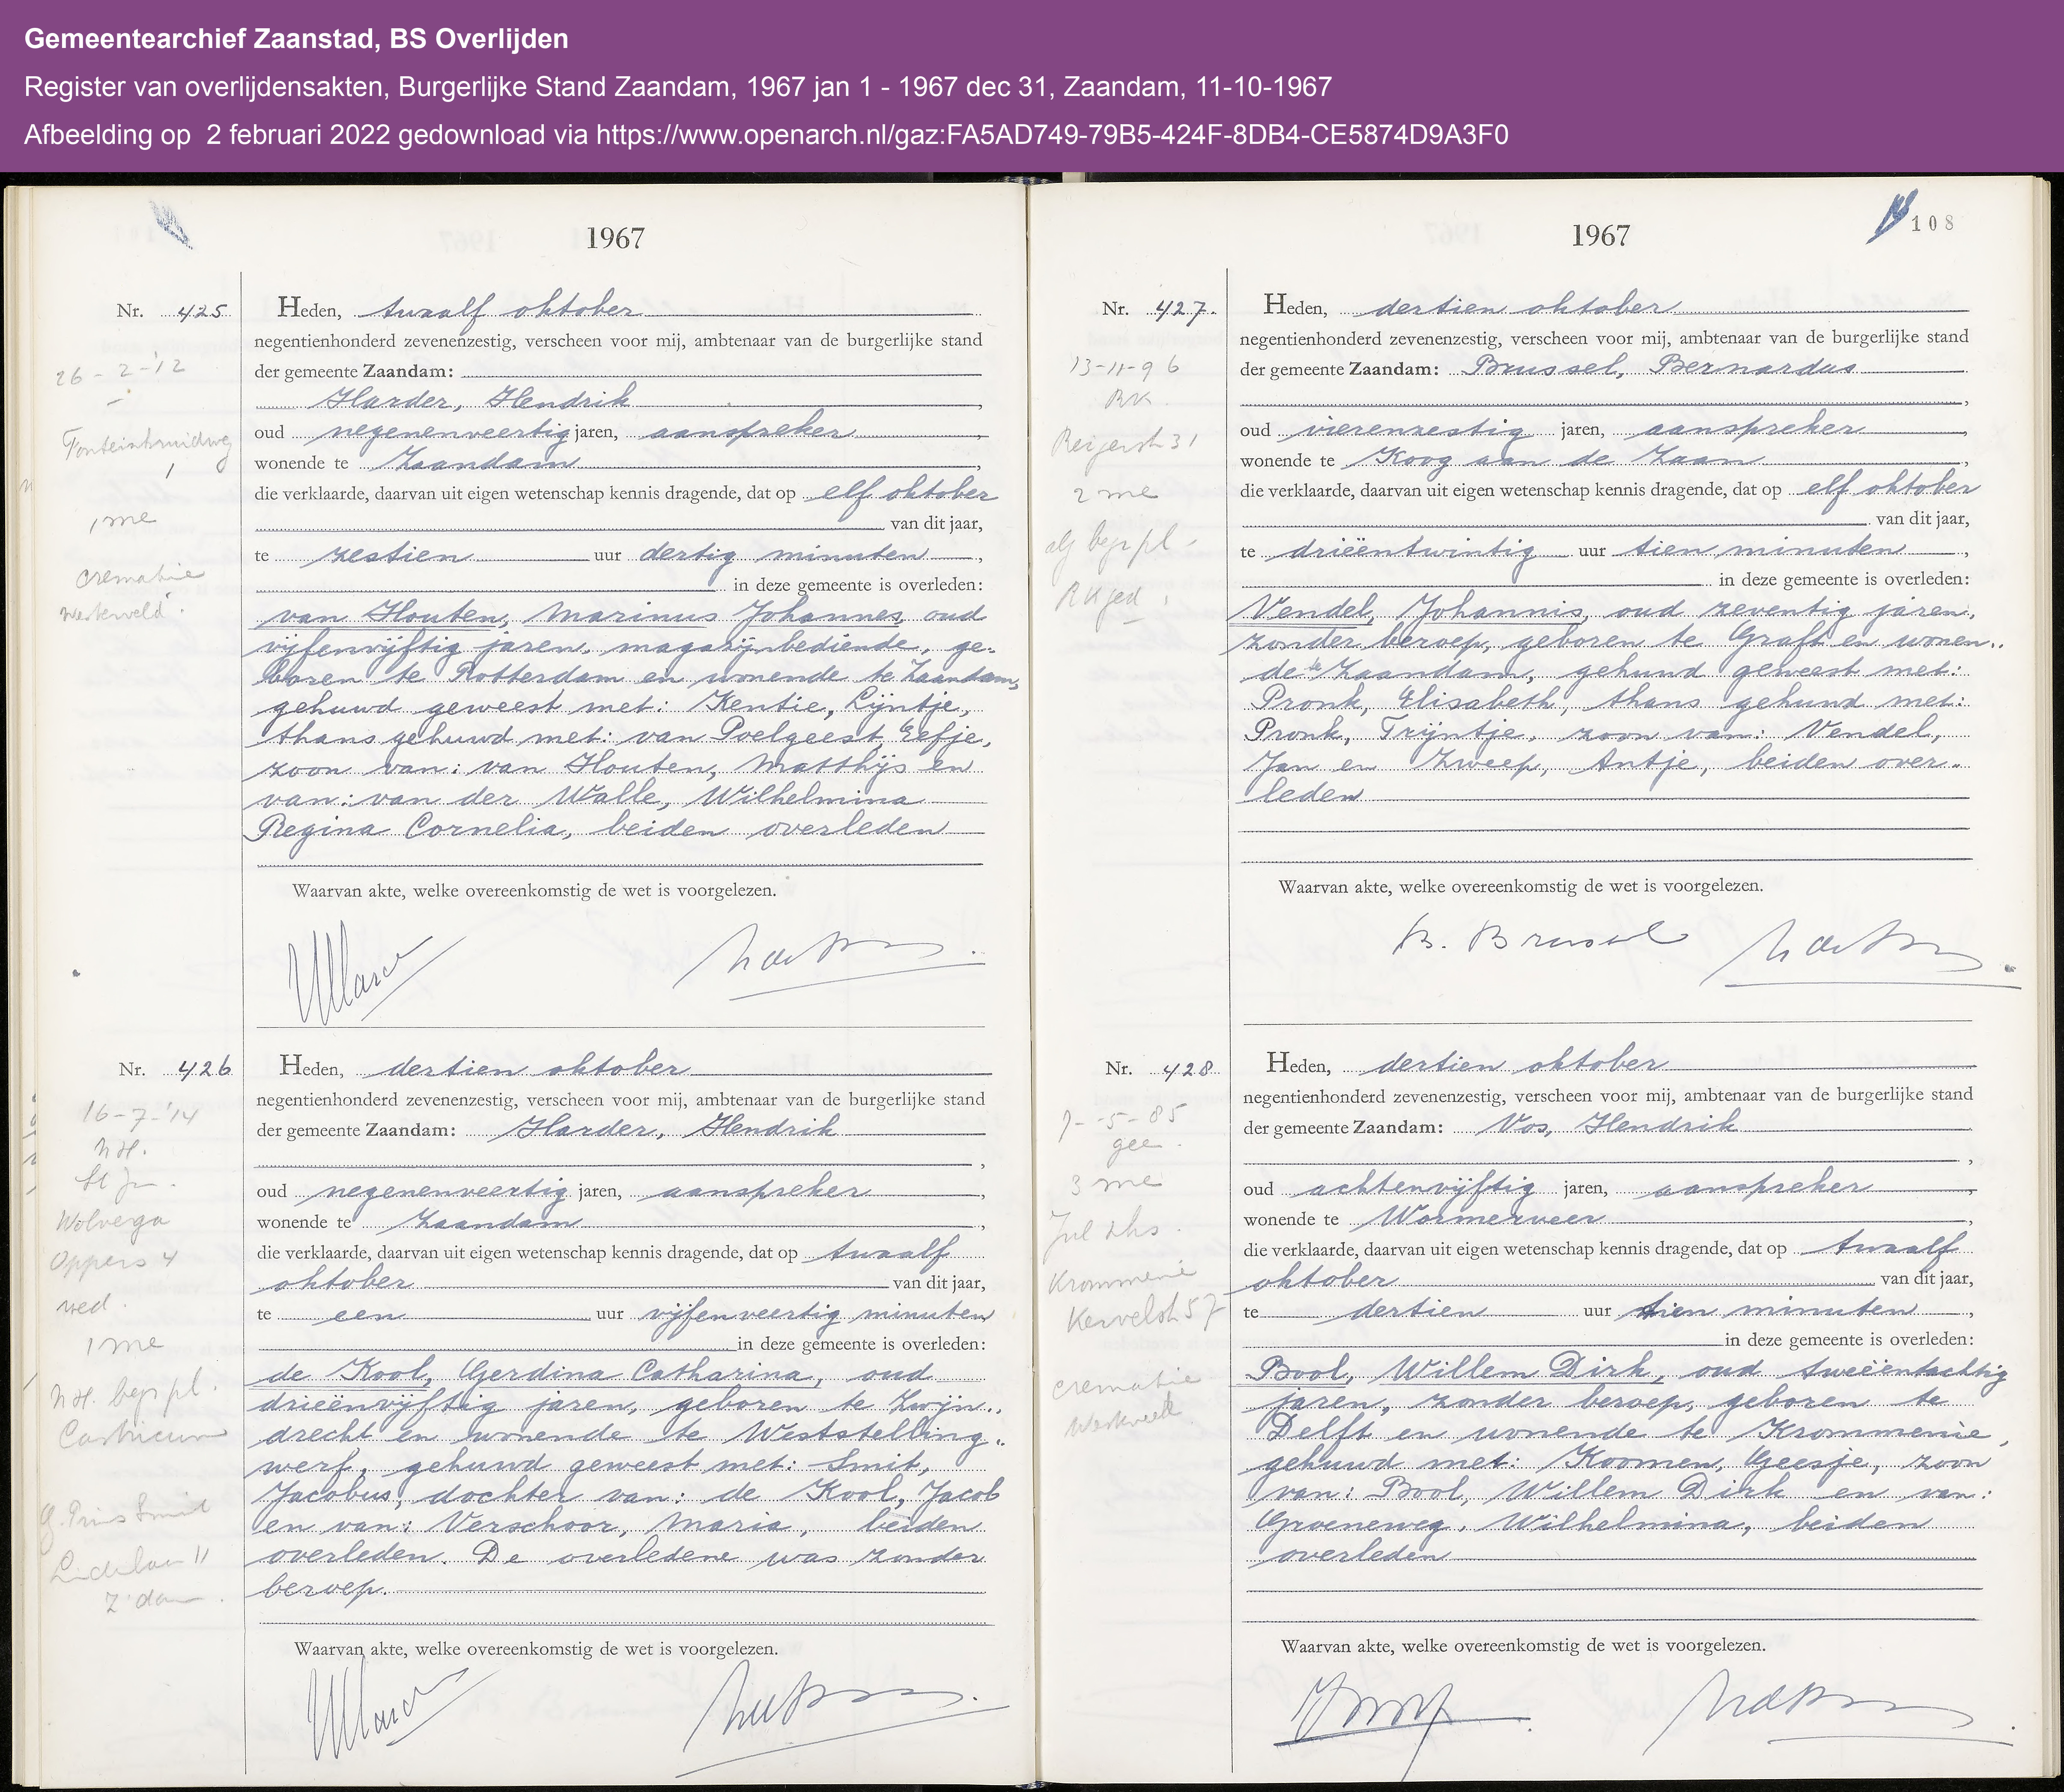 Gemeentearchief Zaanstad, BS Overlijden
Register van overlijdensakten, Burgerlijke Stand Zaandam, 1967 jan 1 - 1967 dec 31, Zaandam, 11-10-1967
Afbeelding op 2 februari 2022 gedownload via https://www.openarch.nl/gaz:FA5AD749-79B5-424F-8DB4-CE5874D9A3F0
1967
Nr. 425
26-2-'12
1
1 me
crematie
Westerveld.
Heden, twaalf oktober
negentienhonderd zevenenzestig, verscheen voor mij, ambtenaar van de burgerlijke stand
der gemeente Zaandam:
Harder, Hendrik,
oud negenenveertig jaren, aanspreker,
wonende te Zaandam,
die verklaarde, daarvan uit eigen wetenschap kennis dragende, dat op elf oktober
van dit jaar,
te zestien uur dertig minuten,
in deze gemeente is overleden:
van Houten, Marinus Johannes, oud
vijfenvijftig jaren, magazijnbediende, ge-
boren te Rotterdam en wonende te Zaandam,
gehuwd geweest met: Kentie, Lijntje,
thans gehuwd met: van Poelgeest, Eefje,
zoon van: van Houten, Matthijs en
van: van der Walle, Wilhelmina
Regina Cornelia, beiden overleden
Waarvan akte, welke overeenkomstig de wet is voorgelezen.
Nr. 426
16-7-'14
N.H.
Wolvega
Oppers 4
wed.
1 me
N.H. begr pl.
Castricum
G. Prins Smit
Z'dam
Heden, dertien oktober
negentienhonderd zevenenzestig, verscheen voor mij, ambtenaar van de burgerlijke stand
der gemeente Zaandam: Harder, Hendrik
,
oud negenenveertig jaren, aanspreker,
wonende te Zaandam,
die verklaarde, daarvan uit eigen wetenschap kennis dragende, dat op twaalf
oktober van dit jaar,
te een uur vijfenveertig minuten
in deze gemeente is overleden:
de Kool, Gerdina Catharina, oud
drieënvijftig jaren, geboren te Zwijn-
drecht en wonende te Weststelling-
werf, gehuwd geweest met: Smit,
Jacobus, dochter van: de Kool, Jacob
en van: Verschoor, Maria, beiden
overleden. De overledene was zonder
beroep.
Waarvan akte, welke overeenkomstig de wet is voorgelezen.
1967
108
Nr. 427.
13-11-96
RK.
Reigerstr 31
2 me
alg begr pl -
RK ged
Heden, dertien oktober
negentienhonderd zevenenzestig, verscheen voor mij, ambtenaar van de burgerlijke stand
der gemeente Zaandam: Brussel, Bernardus
,
oud vierenzestig jaren, aanspreker,
wonende te Koog aan de Zaan,
die verklaarde, daarvan uit eigen wetenschap kennis dragende, dat op elf oktober
van dit jaar,
te drieëntwintig uur tien minuten,
in deze gemeente is overleden:
Vendel, Johannis, oud zeventig jaren,
zonder beroep, geboren te Graft en wonen-
de te Zaandam, gehuwd geweest met:
Pronk, Elisabeth, thans gehuwd met:
Pronk, Trijntje, zoon van: Vendel,
Jan en Zweep, Antje, beiden over-
leden
Waarvan akte, welke overeenkomstig de wet is voorgelezen.
B. Brussel
Nr. 428
7-5-85
gee.
3 me
Jul zhs.
Krommenie
Kervelstr 57
crematie
Westerveld
Heden, dertien oktober
negentienhonderd zevenenzestig, verscheen voor mij, ambtenaar van de burgerlijke stand
der gemeente Zaandam: Vos, Hendrik
,
oud achtenvijftig jaren, aanspreker,
wonende te Wormerveer,
die verklaarde, daarvan uit eigen wetenschap kennis dragende, dat op twaalf
oktober van dit jaar,
te dertien uur tien minuten,
in deze gemeente is overleden:
Bool, Willem Dirk, oud tweeëntachtig
jaren, zonder beroep, geboren te
Delft en wonende te Krommenie,
gehuwd met: Koomen, Geesje, zoon
van: Bool, Willem Dirk en van:
Groeneweg, Wilhelmina, beiden
overleden
Waarvan akte, welke overeenkomstig de wet is voorgelezen.